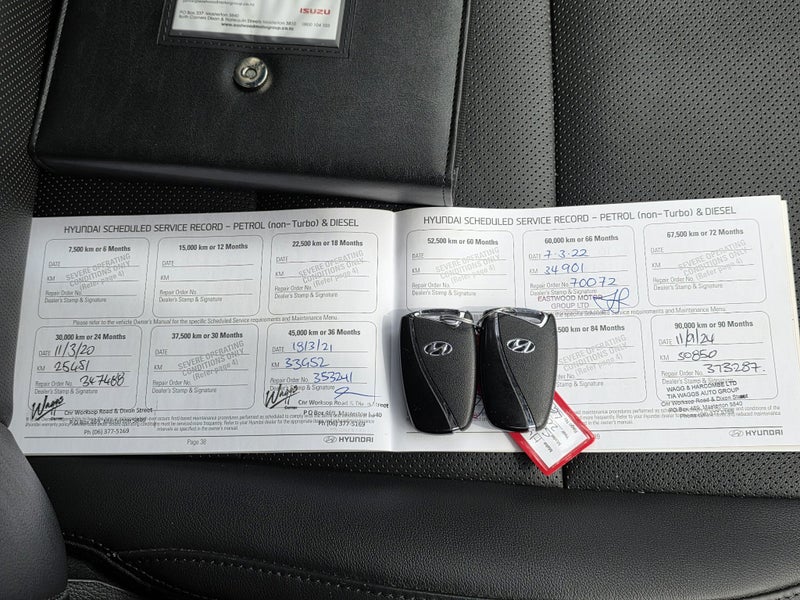 PO BOX 337, Masterton 5840
ISUZU
0800 104 103
www.eastwoodmotorgroup.co.nz
HYUNDAI SCHEDULED SERVICE RECORD - PETROL (non-Turbo) & DIESEL
7,500 km or 6 Months
DATE
KM
SEVERE OPERATING
CONDITIONS ONLY
(Refer page 4)
Repair Order No.
Dealer's Stamp & Signature
15,000 km or 12 Months
DATE
KM
Repair Order No.
Dealer's Stamp & Signature
22,500 km or 18 Months
DATE
KM
SEVERE OPERATING
CONDITIONS ONLY
(Refer page 4)
Repair Order No.
Dealer's Stamp & Signature
Please refer to the vehicle Owner's Manual for the specific Scheduled Service requirements and Maintenance Menu.
30,000 km or 24 Months
DATE 11/3/20
KM 25451
Repair Order No. 347488
Dealer's Stamp & Signature
Waggs
Cnr Worksop Road & Dixon Street
Ph (06) 377-5269
37,500 km or 30 Months
DATE
KM
SEVERE OPERATING
CONDITIONS ONLY
(Refer page 4)
Repair Order No.
Dealer's Stamp & Signature
45,000 km or 36 Months
DATE 19/3/21
KM 33452
Repair Order No. 353241
Dealer's Stamp & Signature
Waggs
Cnr Worksop Road & Dixon Street
P O Box 469, Masterton 5840
Ph (06) 377-5269
Page 38
HYUNDAI
HYUNDAI SCHEDULED SERVICE RECORD - PETROL (non-Turbo) & DIESEL
52,500 km or 60 Months
DATE
KM
SEVERE OPERATING
CONDITIONS ONLY
(Refer page 4)
Repair Order No.
Dealer's Stamp & Signature
60,000 km or 66 Months
DATE 7.3.22
KM 34901
Repair Order No. 70072
Dealer's Stamp & Signature
EASTWOOD MOTOR
GROUP LTD
67,500 km or 72 Months
DATE
KM
SEVERE OPERATING
CONDITIONS ONLY
(Refer page 4)
Repair Order No.
Dealer's Stamp & Signature
Scheduled Service requirements and Maintenance Menu.
or 84 Months
90,000 km or 90 Months
DATE
KM 50850
Repair Order No. 373287
Dealer's Stamp & Signature
WAGG & HARCOMBE LTD
T/A WAGGS AUTO GROUP
Cnr Worksop Road & Dixon Street
P O Box 469, Masterton 5840
HYUNDAI